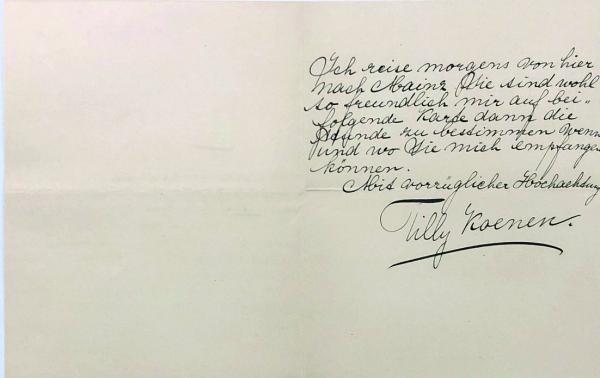 Ich reise morgens von hier
nach Mainz Sie sind wohl
so freundlich mir auf bei„
folgende Karte dann die
Stunde zu bestimmen wenn
und wo Sie mich empfangen
können.
Mit vorzüglicher Hochachtung
Tilly Koenen.